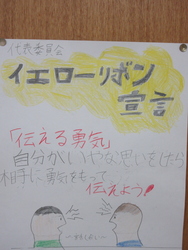 代表委員会
イエローリボン
宣言
「伝える勇気」
自分がいやな思いをしたら
相手に勇気をもって
伝えよう!